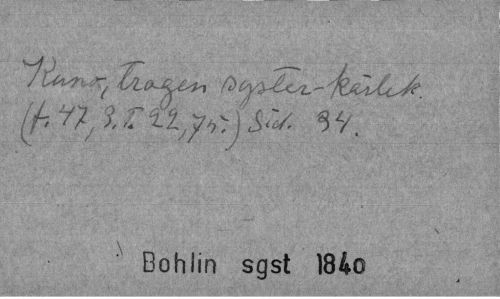 Kuno, trogen syster-kärlek.
(t. 47, 3. T. 22, 75.) Sid. 34.
Bohlin sgst 1840